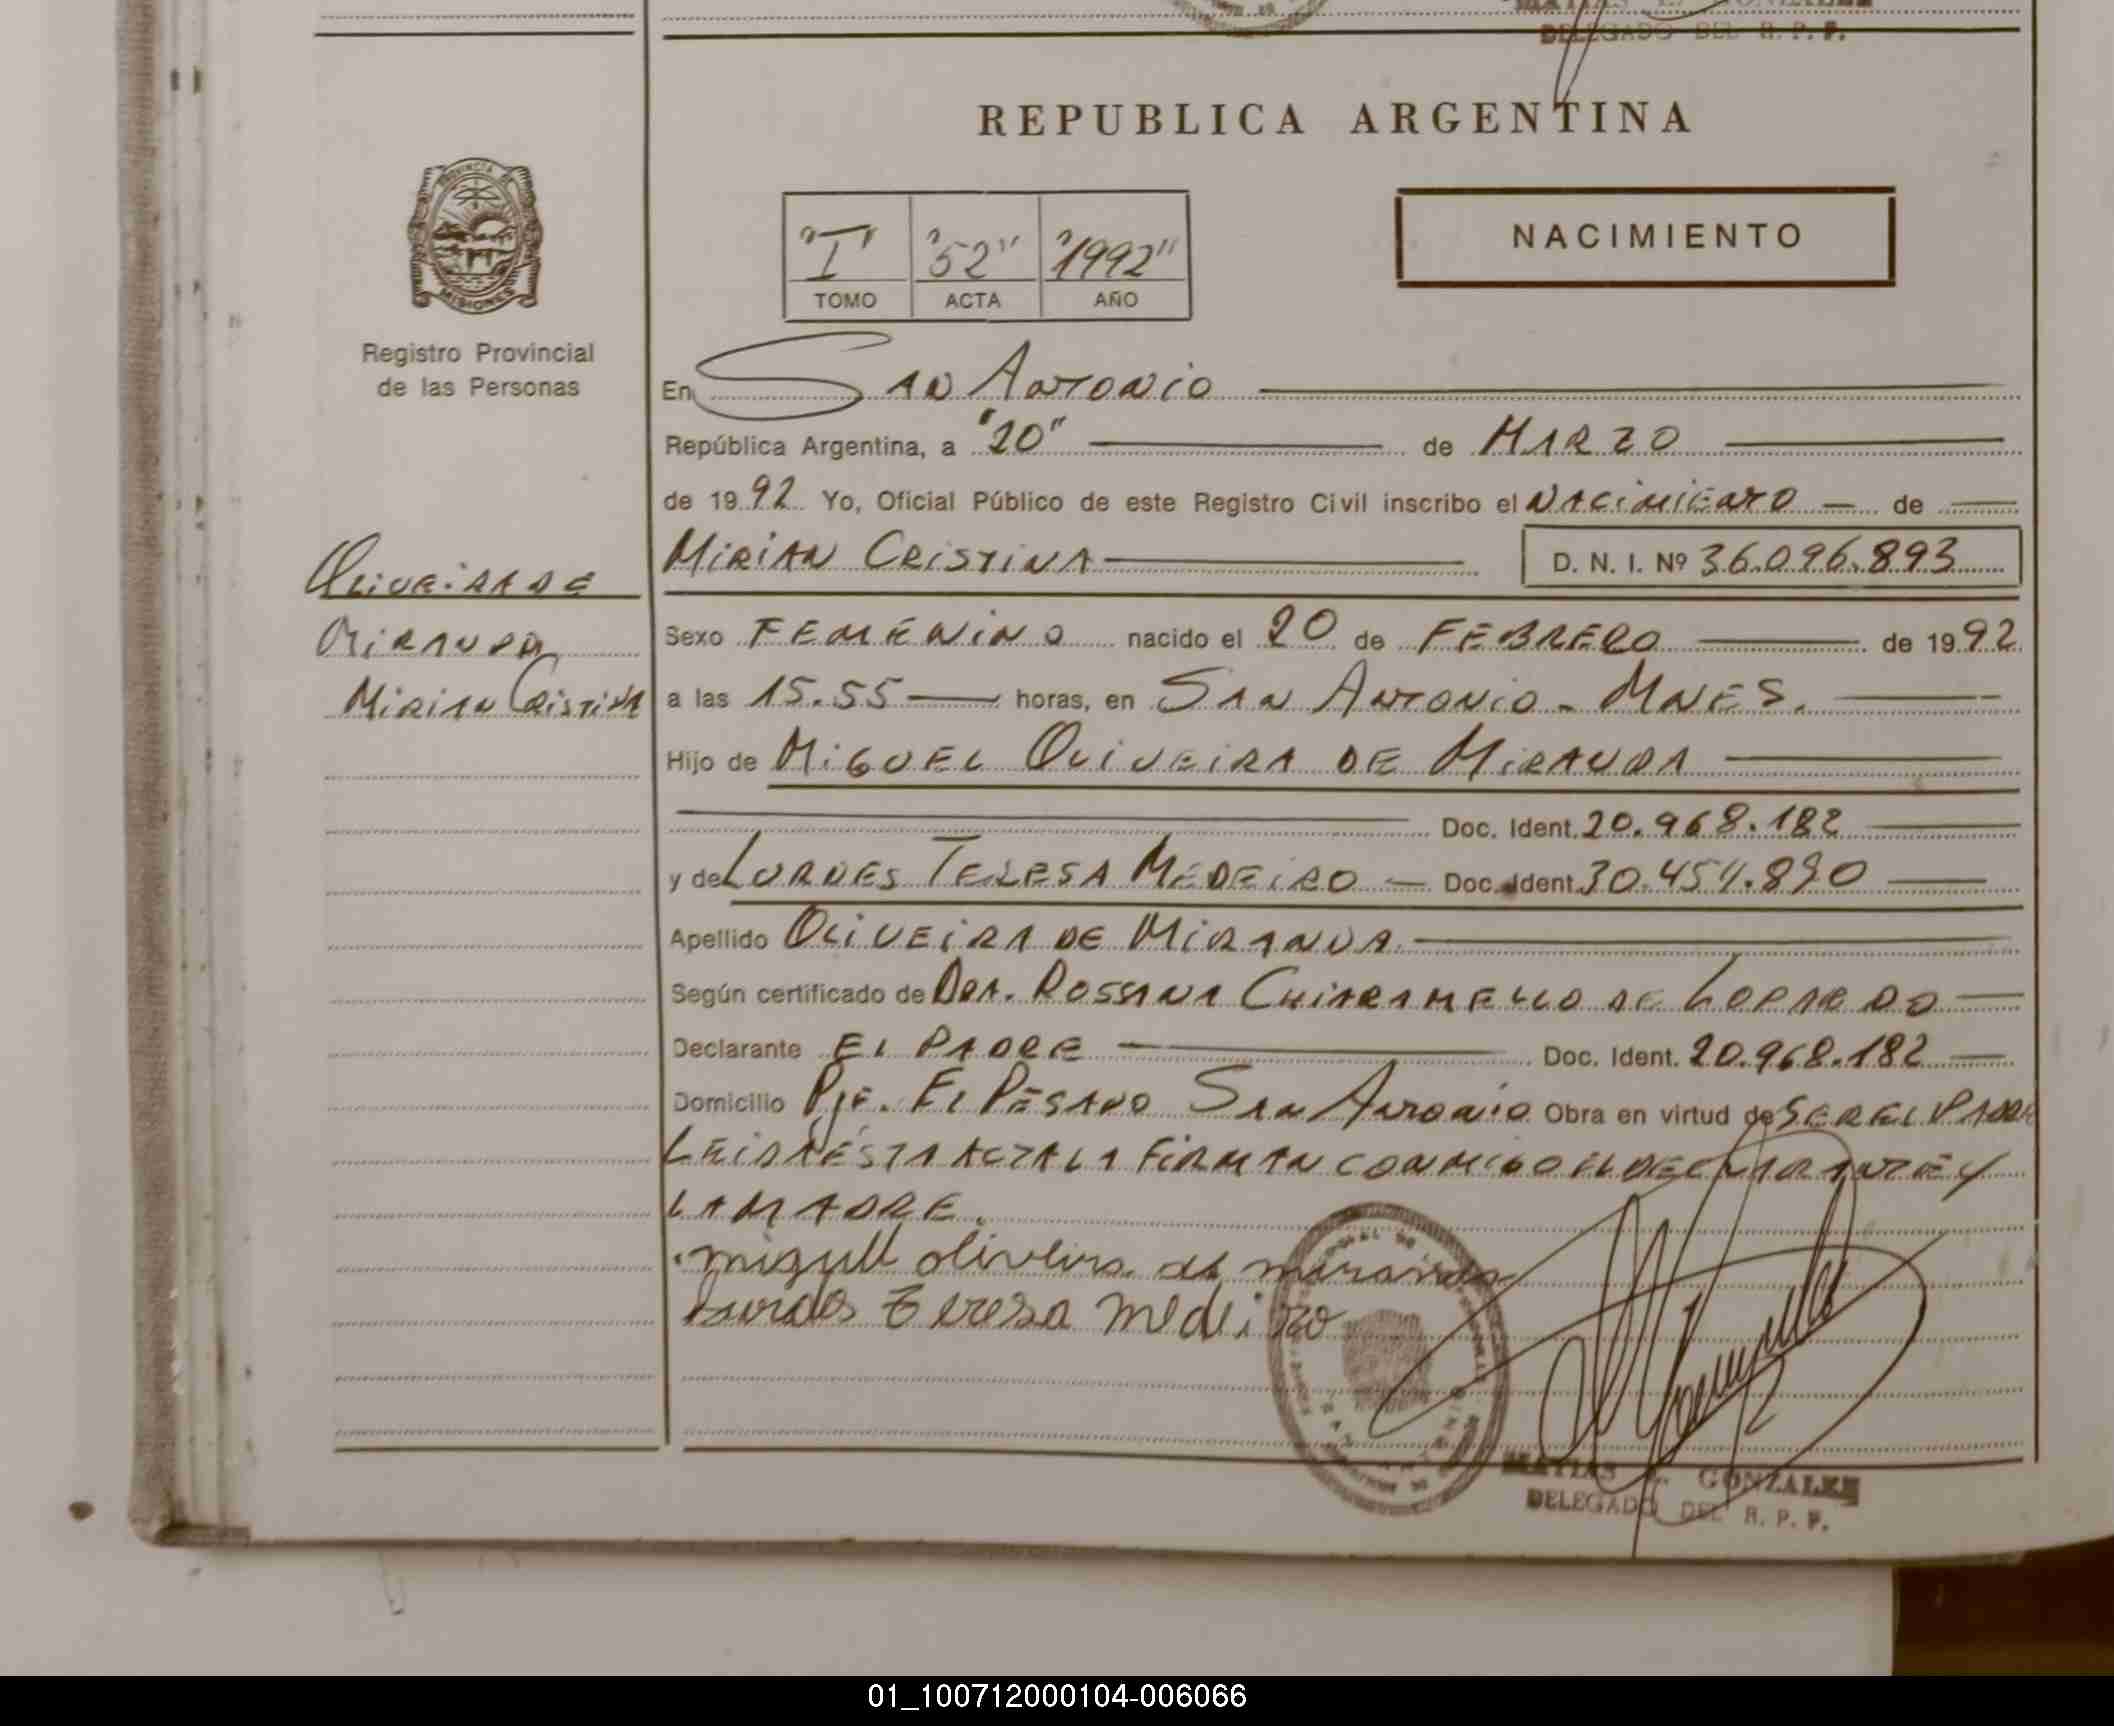 DELEGADO DEL R. P. P.
REPUBLICA ARGENTINA
NACIMIENTO
"I" "52" "1992"
TOMO ACTA AÑO
MISIONES
Registro Provincial
de las Personas
En SAN ANTONIO
República Argentina, a "20" de MARZO
de 1992 Yo, Oficial Público de este Registro Civil inscribo el NACIMIENTO — de
MIRIAN CRISTINA D. N. I. Nº 36.096.893
OLIVEIRA DE
MIRANDA
MIRIAN CRISTINA
Sexo FEMENINO nacido el 20 de FEBRERO de 1992
a las 15.55 horas, en SAN ANTONIO - MNES.
Hijo de MIGUEL OLIVEIRA DE MIRANDA
Doc. Ident. 20.968.182
y de LURDES TERESA MEDEIRO — Doc. Ident. 30.454.890
Apellido OLIVEIRA DE MIRANDA
Según certificado de DRA. ROSSANA CHIARAMELLO DE LOPARDO
Declarante EL PADRE Doc. Ident. 20.968.182
Domicilio Pje. EL PESADO SAN ANTONIO Obra en virtud de SER EL PADRE
LEIDA ESTA ACTA LA FIRMAN CONMIGO EL DECLARANTE Y
LA MADRE.
miguel oliveira de miranda
Lurdes teresa medeiro
MATIAS GONZALEZ
DELEGADO DEL R. P. P.
01_100712000104-006066